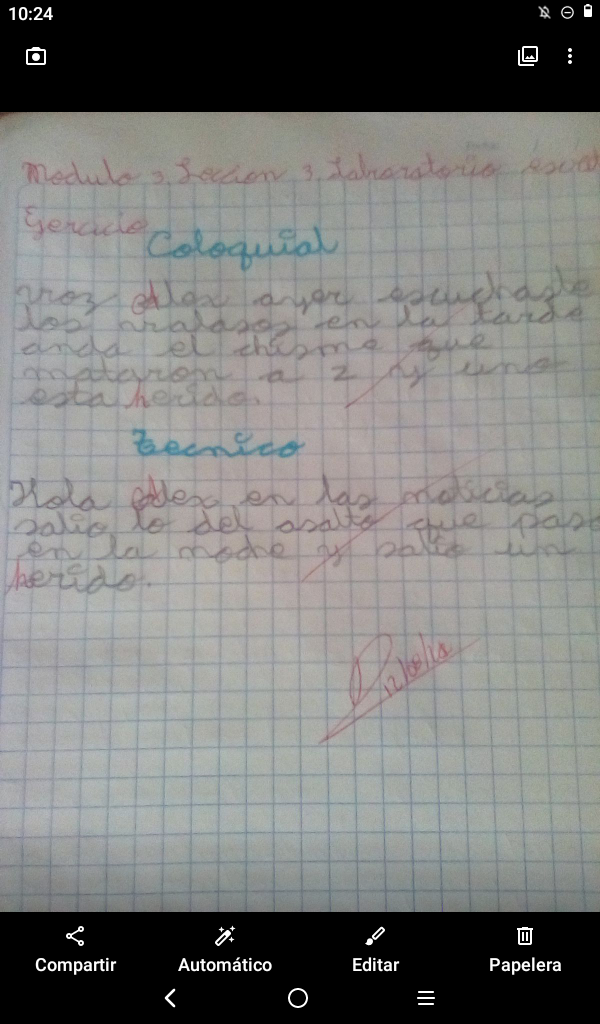 10:24
Modulo 3, Leccion 3, Laboratorio
Coloquial
Alex ayer escuchaste
los balasos en la tarde
anda el chisme que
mataron a 2 y uno
esta herido.
Tecnico
Hola Alex en las noticias
salio lo del asalto que paso
en la noche y salio un
herido.
12/08/20
Compartir
Automático
Editar
Papelera